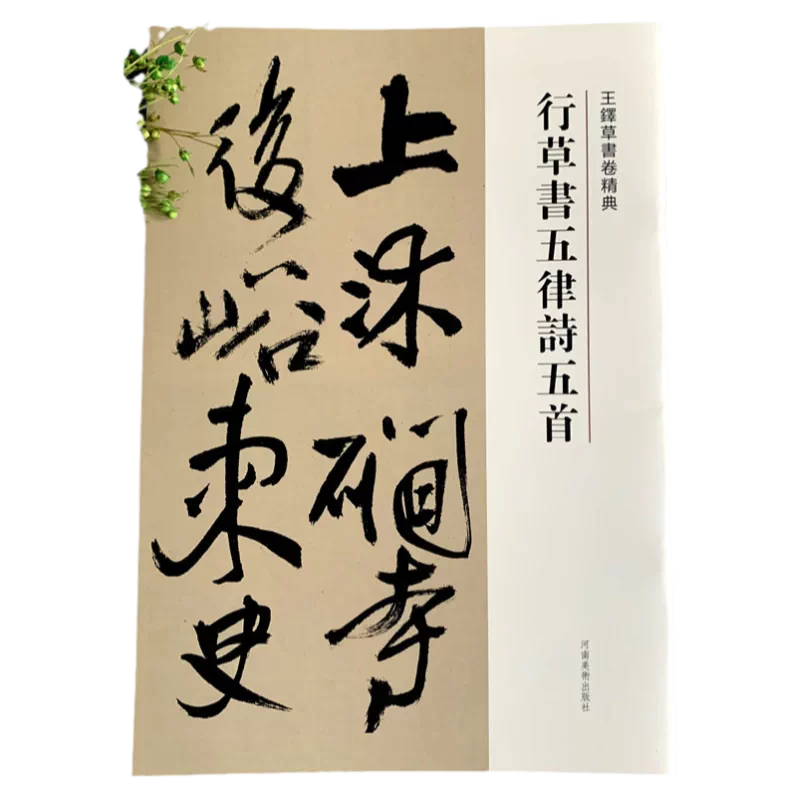 王鐸草書卷精典
行草書五律詩五首
河南美術出版社
上沐磵寺
後峪